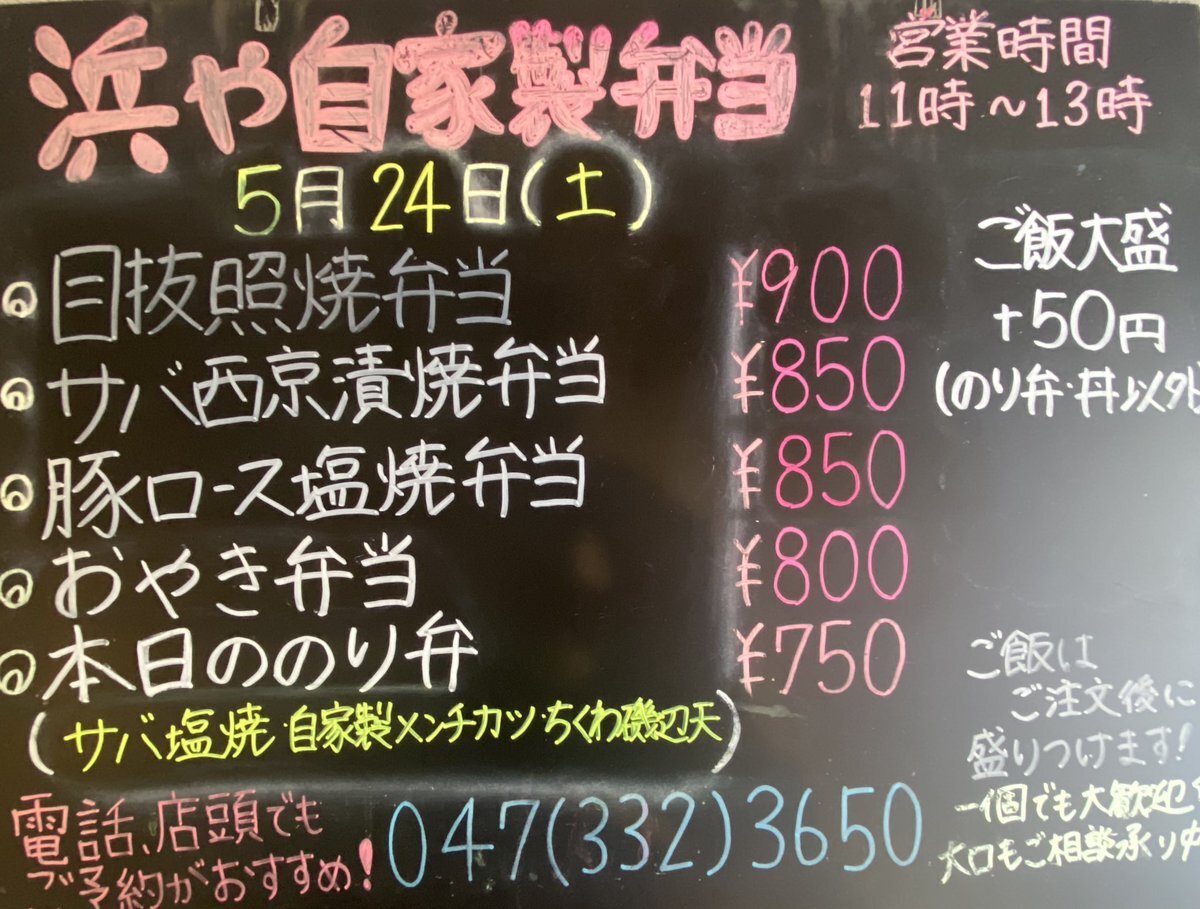 浜や自家製弁当
営業時間
11時～13時
5月24日(土)
目抜照焼弁当 ¥900
サバ西京漬焼弁当 ¥850
豚ロース塩焼弁当 ¥850
おやき弁当 ¥800
本日ののり弁 ¥750
(サバ塩焼・自家製メンチカツ・ちくわ磯辺天)
ご飯大盛
+50円
(のり弁・丼以外
ご飯は
ご注文後に
盛りつけます!
一個でも大歓迎
大口もご相談承り
電話、店頭でも
ご予約がおすすめ!
047(332)3650